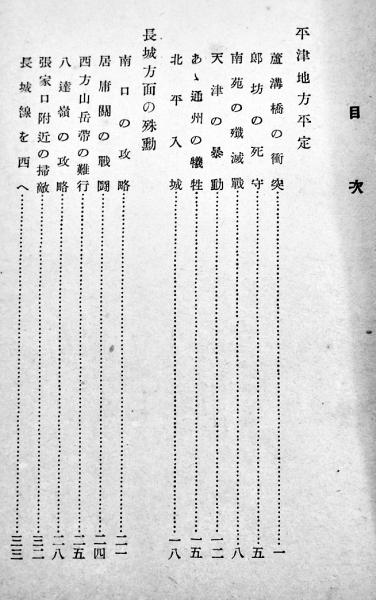 目次
平津地方平定
蘆溝橋の衝突……………一
郎坊の死守……………五
南苑の殲滅戰……………八
天津の暴動……………一二
あゝ通州の犠牲……………一五
北平入城……………一八
長城方面の殊勳
南口の攻略……………二一
居庸關の戰鬪……………二四
西方山岳帶の難行……………二五
八達嶺の攻略……………二八
張家口附近の掃敵……………三二
長城線を西へ……………三三